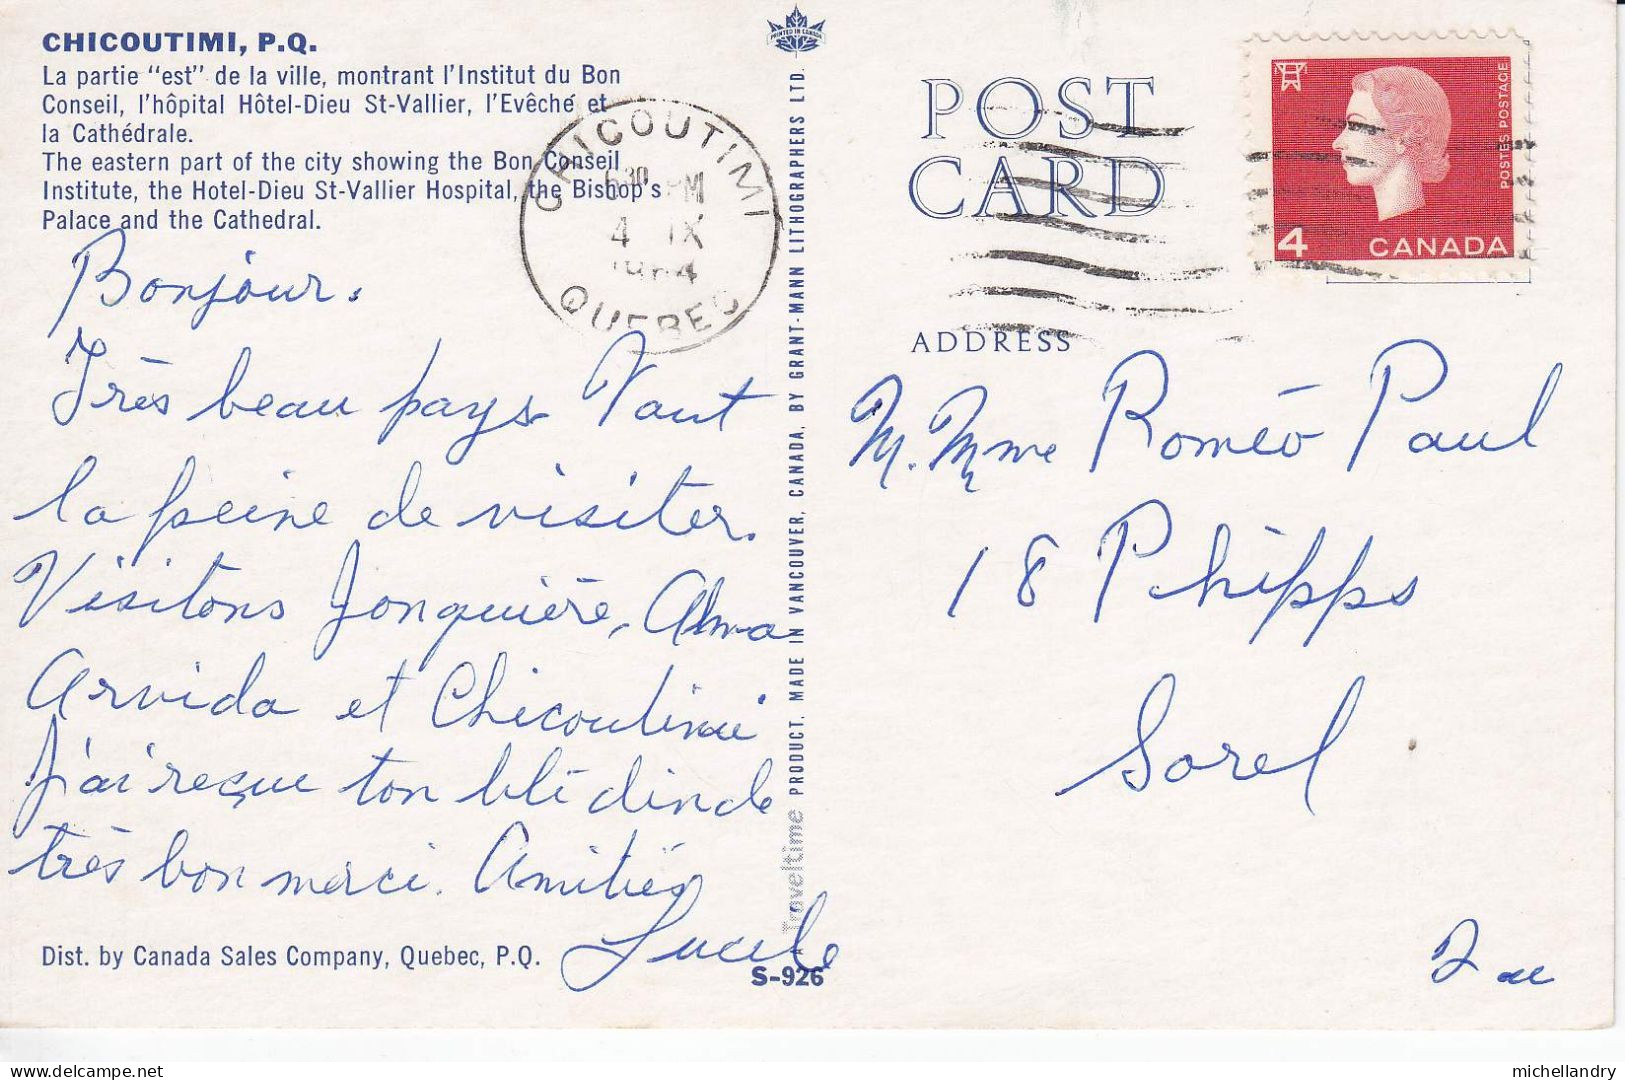 CHICOUTIMI, P.Q.
La partie "est" de la ville, montrant l'Institut du Bon
Conseil, l'hôpital Hôtel-Dieu St-Vallier, l'Evêché et
la Cathédrale.
The eastern part of the city showing the Bon Conseil
Institute, the Hotel-Dieu St-Vallier Hospital, the Bishop's
Palace and the Cathedral.
Bonjour.
Très beau pays Vaut
la peine de visiter.
Visitons Jonquière, Alma
Arvida et Chicoutimi
J'ai reçue ton blé dinde
très bon merci. Amitiés
Lucile
Dist. by Canada Sales Company, Quebec, P.Q.
S-926
CHICOUTIMI
630 PM
4 IX
QUEBEC
PRINTED IN CANADA
Traveltime PRODUCT. MADE IN VANCOUVER, CANADA, BY GRANT-MANN LITHOGRAPHERS LTD.
POST
CARD
ADDRESS
4 CANADA
POSTES POSTAGE
M. Mme Roméo Paul
18 Phipps
Sorel
michellandry